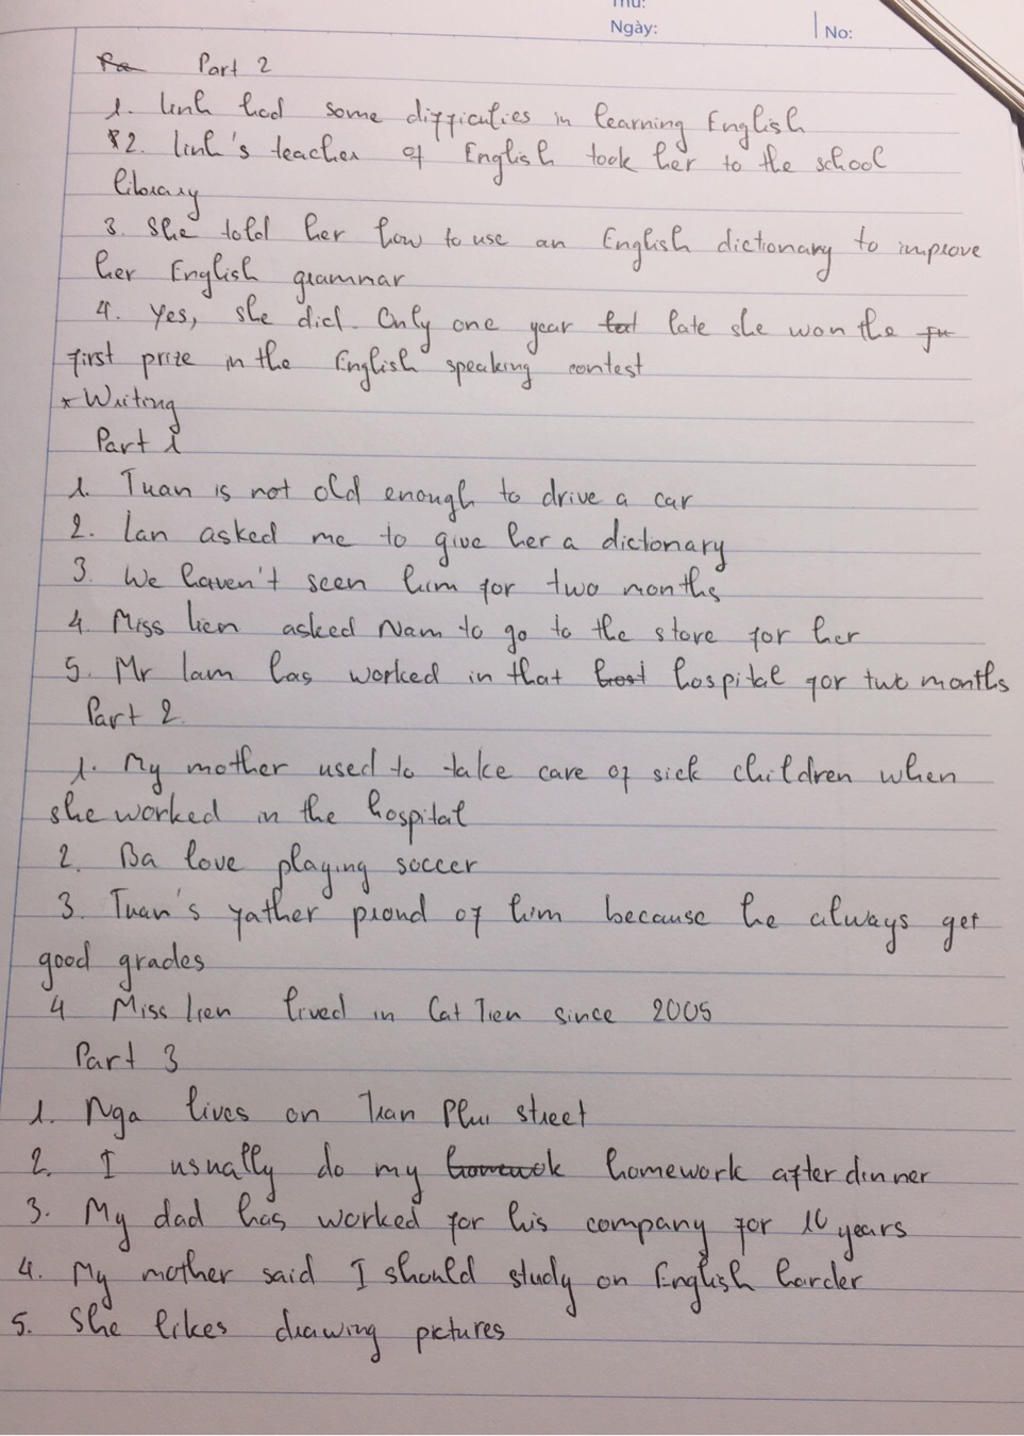 Thứ:
Ngày:
No:
Part 2
1. Linh had some difficulties in learning English
2. Linh's teacher of English took her to the school
library
3. She told her how to use an English dictionary to improve
her English grammar
4. Yes, she did. Only one year late she won the
first prize in the English speaking contest
* Writing
Part 1
1. Tuan is not old enough to drive a car
2. Lan asked me to give her a dictonary
3. We haven't seen him for two months
4. Miss Lien asked Nam to go to the store for her
5. Mr Lam has worked in that hospital for two months
Part 2
1. My mother used to take care of sick children when
she worked in the hospital
2. Ba love playing soccer
3. Tuan's father proud of him because he always get
good grades
4 Miss Lien lived in Cat Tien since 2005
Part 3
1. Nga lives on Tran Phu street
2. I usually do my homework after dinner
3. My dad has worked for his company for 10 years
4. My mother said I should study on English harder
5. She likes drawing pictures